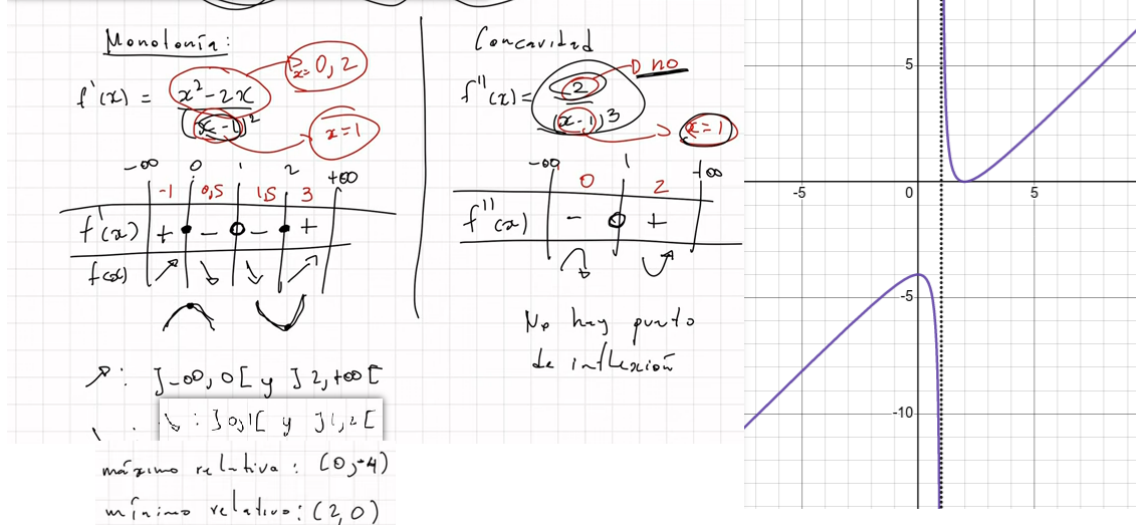 Monotonía:
f'(x) = x²-2x / (x-1)²
x=0,2
x=1
-∞ 0 1 2 +∞
-1 0,5 1,5 3
f'(x) + - - +
f(x) ↗ ↘ ↘ ↗
↗: ]-∞,0[ y ]2,+∞[
↘: ]0,1[ y ]1,2[
máximo relativa: (0,-4)
mínimo relativo: (2,0)
Concavidad
f''(x)= 2 / (x-1)³
no
x=1
-∞ 1 +∞
0 2
f''(x) - +
No hay punto
de inflexión
5
-5 0 5
-5
-10